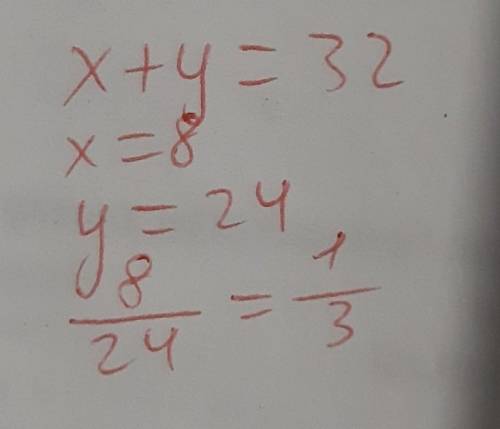 x+y=32
x=8
y=24
8/24 = 1/3